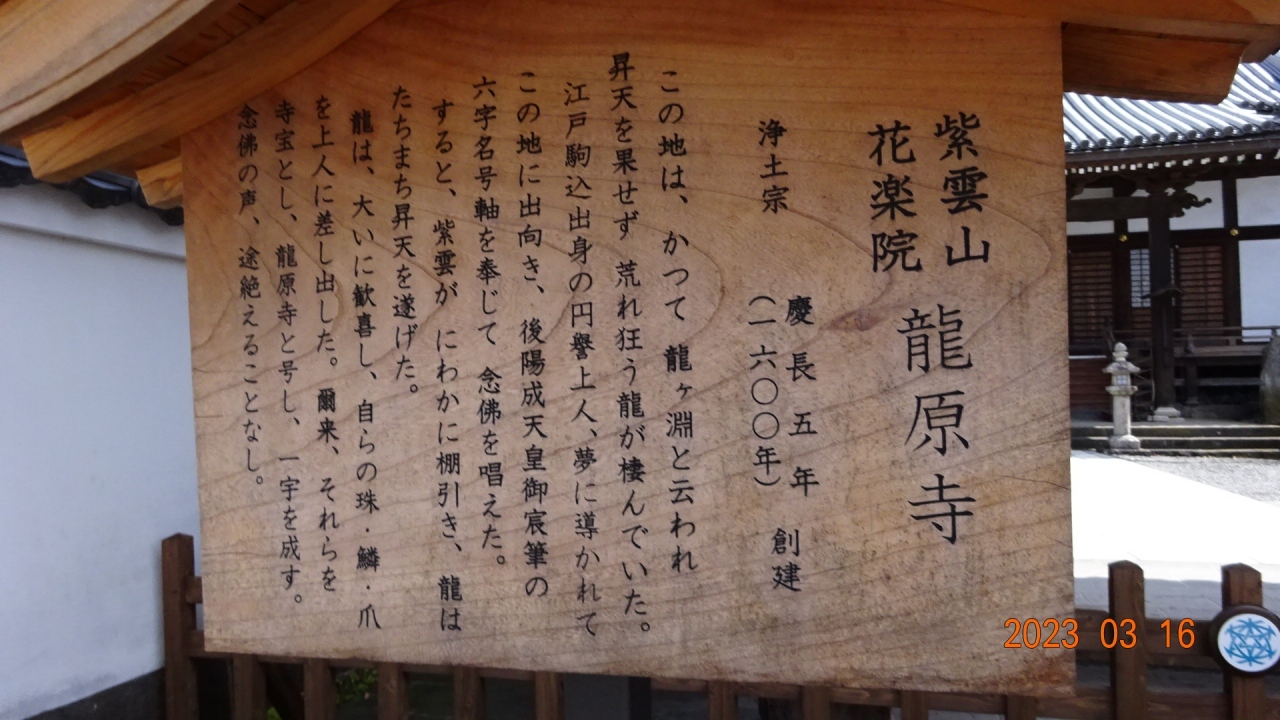 紫雲山
花楽院
龍原寺
浄土宗
慶長五年
(一六〇〇年)
創建
この地は、かつて 龍ヶ淵と云われ
昇天を果せず 荒れ狂う龍が棲んでいた。
江戸駒込出身の円譽上人、夢に導かれて
この地に出向き、後陽成天皇御宸筆の
六字名号軸を奉じて 念佛を唱えた。
すると、紫雲が にわかに棚引き、龍は
たちまち昇天を遂げた。
龍は、大いに歓喜し、自らの珠・鱗・爪
を上人に差し出した。爾来、それらを
寺宝とし、龍原寺と号し、一宇を成す。
念佛の声、途絶えることなし。
2023 03 16